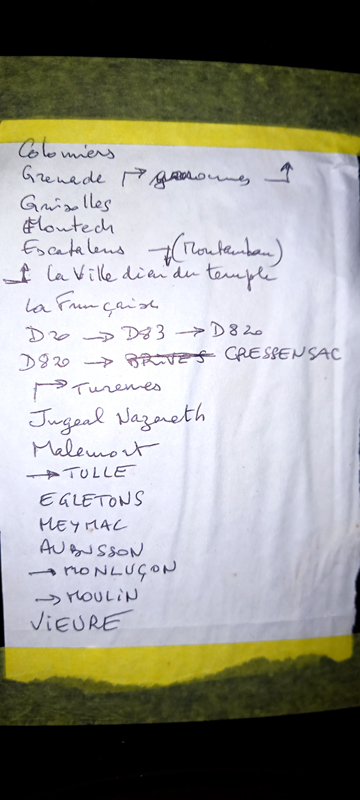 Colomiers
Grenade ↱ ↑
Grisolles
Montech
Escatalens → (Montauban)
↑ la Ville dieu du temple
la Française
D20 → D83 → D820
D820 → BRIVES CRESSENSAC
↱ Turennes
Jugeal Nazareth
Malemort
→ TULLE
EGLETONS
MEYMAC
AUBUSSON
→ MONLUÇON
→ MOULIN
VIEURE